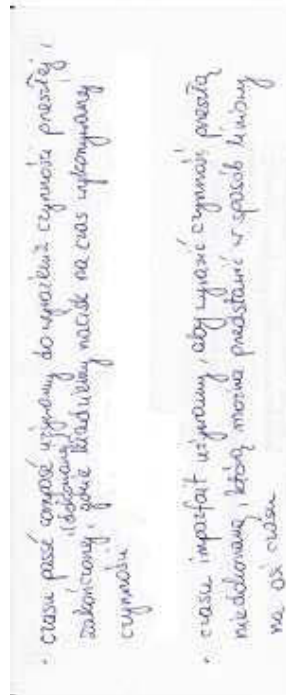 • czasu passé composé używamy do wyrażenia czynności przeszłej,
(dokonanej)
zakończonej, gdzie kładziemy nacisk na czas wykonywanej
czynności
• czasu imparfait używamy, aby wyrazić czynność przeszłą
niedokonaną, którą można przedstawić w sposób liniowy
na osi czasu